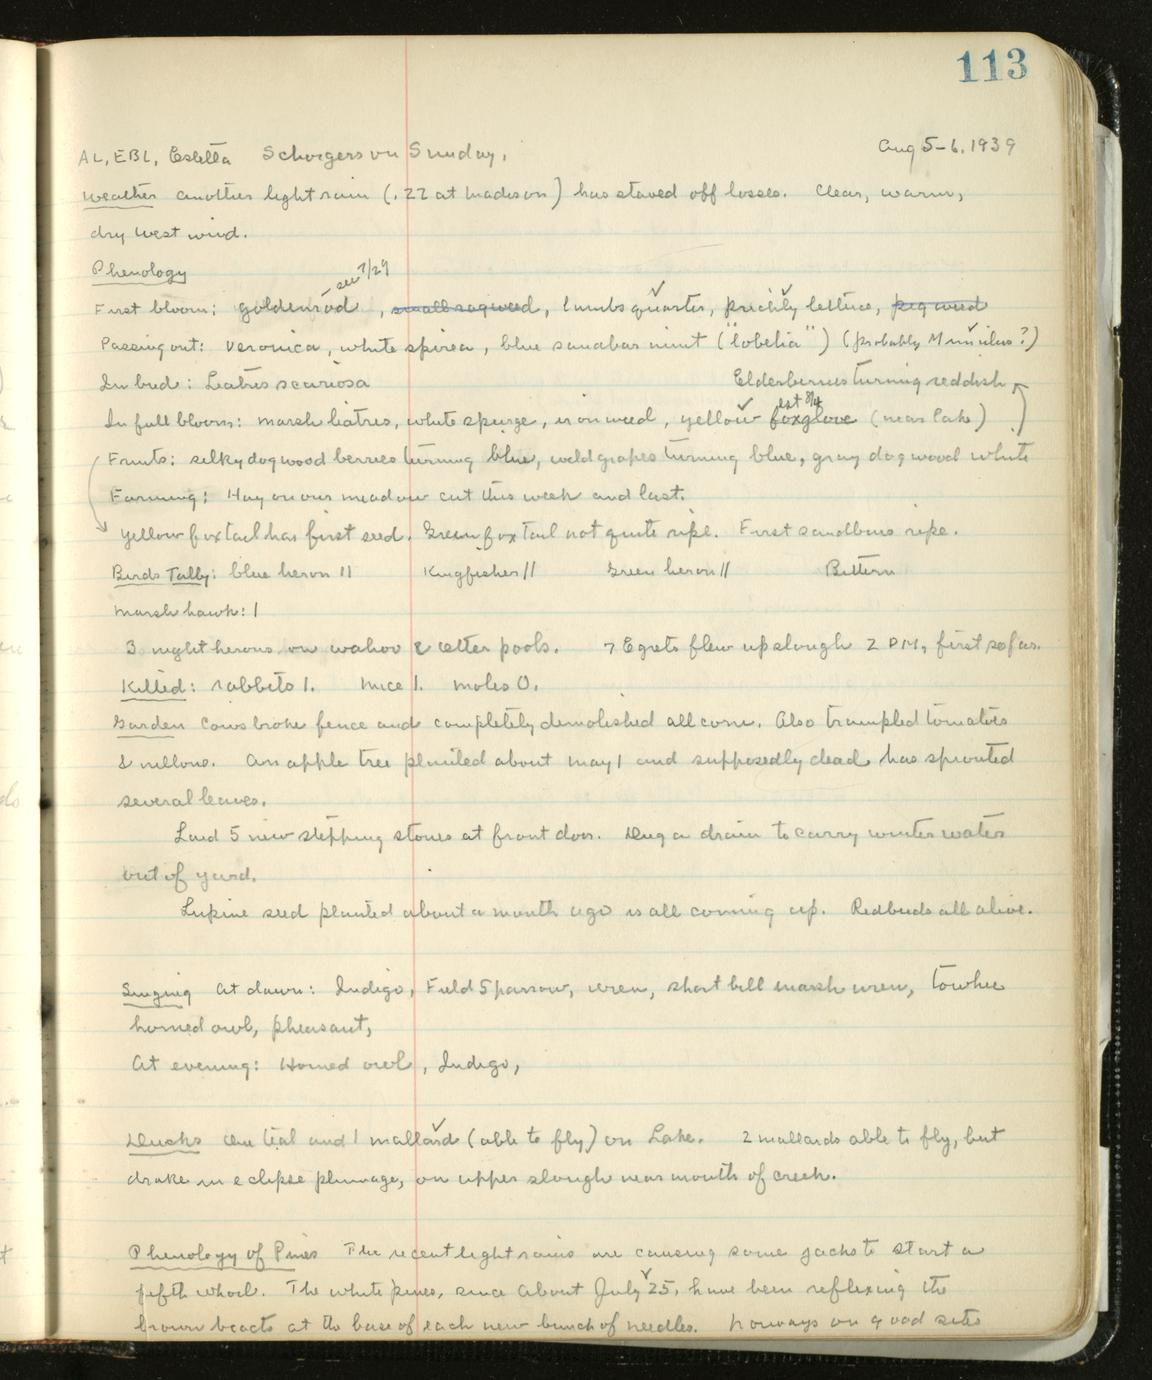 113
AL, EBL, Estella Schorgers on Sunday, Aug 5-6, 1939
Weather another light rain (.22 at Madison) has staved off losses. Clear, warm,
dry West wind.
Phenology
see 7/29
First bloom: goldenrod, small ragweed, lambsquarter, prickly lettuce, pigweed
Passing out: Veronica, white spirea, blue sandbar mint ("lobelia") (probably Mimulus?)
In bud: Liatris scariosa Elderberries turning reddish
est 8/4
In full bloom: marsh liatris, white spurge, ironweed, yellow foxglove (near lake)
Fruits: silky dogwood berries turning blue, wild grapes turning blue, gray dogwood white
Farming: Hay on our meadow cut this week and last.
yellow foxtail has first seed. Green foxtail not quite ripe. First sandburs ripe.
Birds Tally: blue heron 11 Kingfisher 11 Green heron 11 Bittern
Marsh hawk: 1
3 night herons on wahoo & otter pools. 7 Egrets flew up slough 2 PM, first so far.
Killed: rabbits 1. mice 1. moles 0.
Garden Cows broke fence and completely demolished all corn. Also trampled tomatoes
& mellons. An apple tree planted about May 1 and supposedly dead has sprouted
several leaves.
Laid 5 new stepping stones at front door. Dug a drain to carry winter water
out of yard.
Lupine seed planted about a month ago is all coming up. Redbuds all alive.
Singing At dawn: Indigo, Field Sparrow, wren, short bill marsh wren, towhee
horned owl, pheasant,
At evening: Horned owl, Indigo,
Ducks One teal and 1 mallard (able to fly) on Lake. 2 mallards able to fly, but
drake in eclipse plumage, on upper slough near mouth of creek.
Phenology of Pines The recent light rains are causing some jacks to start a
fifth whorl. The white pines, since about July 25, have been reflexing the
brown bracts at the base of each new bunch of needles. Norways on good sites